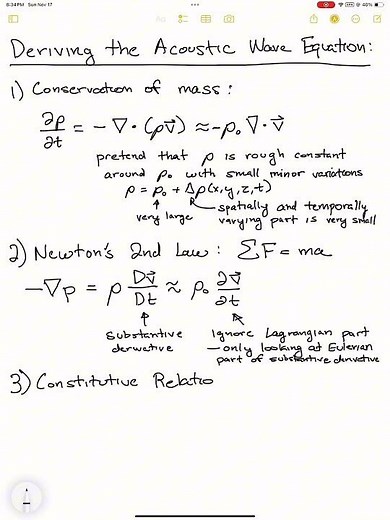 8:34 PM Sun Nov 17
46%
Deriving the Acoustic Wave Equation:
1) Conservation of mass:
∂ρ/∂t = -∇·(ρv⃗) ≈ -ρ₀ ∇·v⃗
pretend that ρ is rough constant
around ρ₀ with small minor variations
ρ = ρ₀ + Δρ(x,y,z,t)
very large
spatially and temporally
varying part is very small
2) Newton's 2nd Law: ΣF = ma
-∇p = ρ Dv⃗/Dt ≈ ρ₀ ∂v⃗/∂t
Substantive
derivative
Ignore Lagrangian part
– only looking at Eulerian
part of substantive derivative
3) Constitutive Relatio